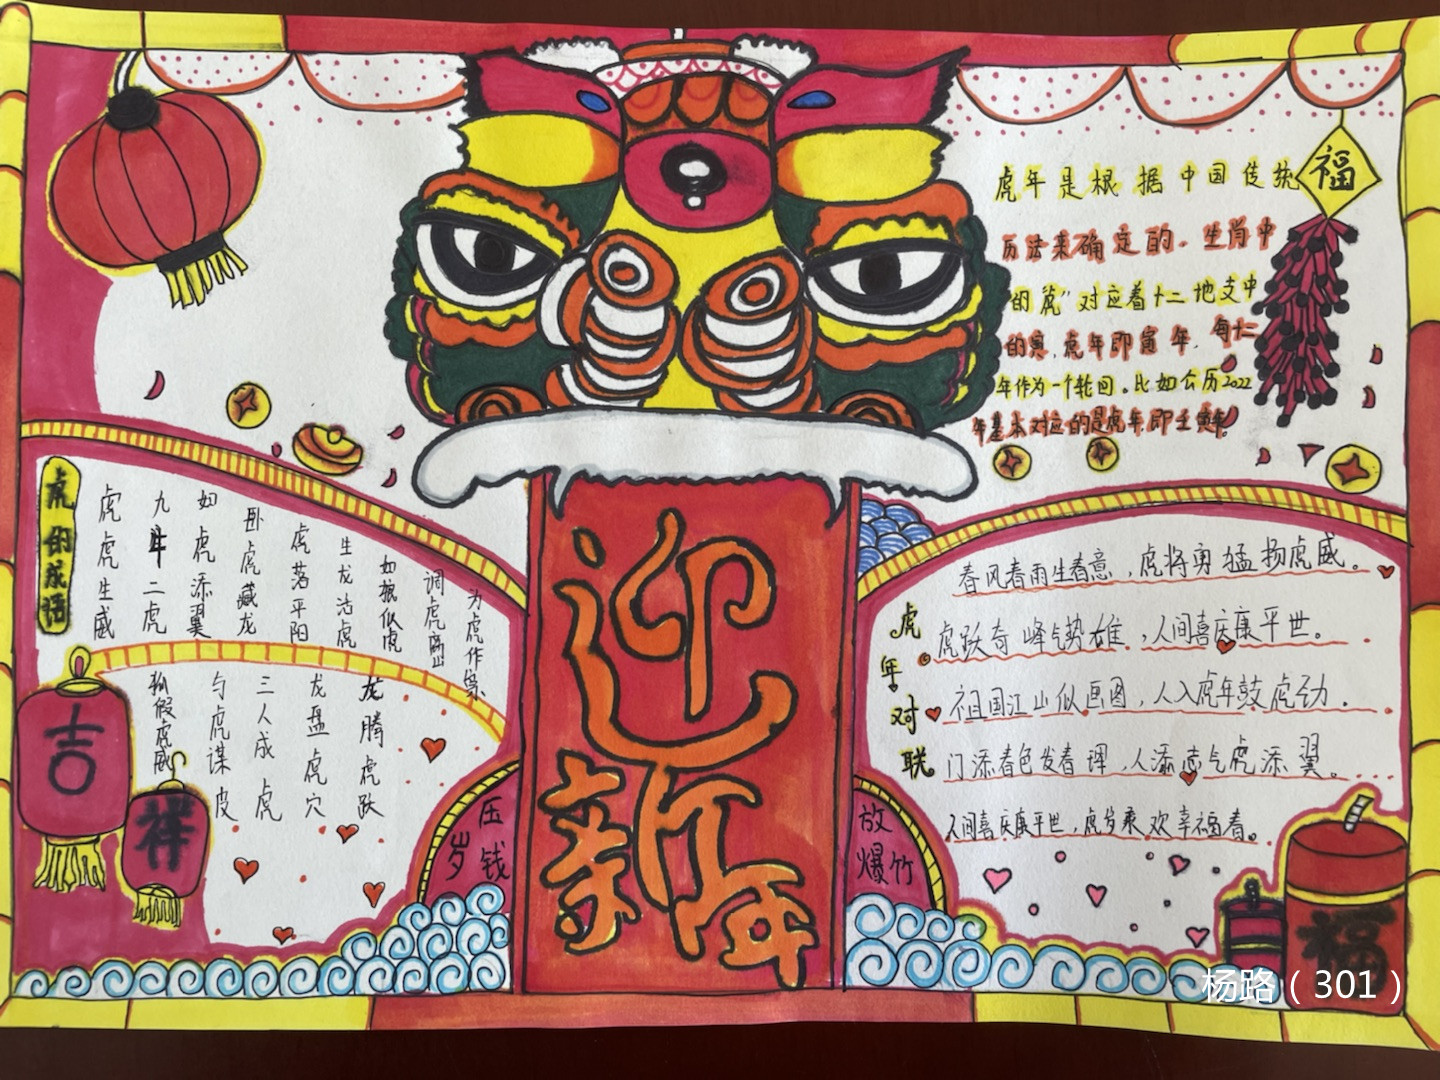 福
虎年是根据中国传统
历法来确定的。生肖中
的虎"对应着十二地支中
的寅,虎年即寅年,每十二
年作为一个轮回。比如公历2022
年基本对应的是虎年,即壬寅年。
虎的成语
虎虎生威
九牛二虎
如虎添翼
卧虎藏龙
虎落平阳
生龙活虎
如狼似虎
调虎离山
为虎作伥
狐假虎威
与虎谋皮
三人成虎
龙盘虎穴
龙腾虎跃
吉
祥
压岁钱
迎新年
放爆竹
虎年对联
春风春雨生春意,虎将勇猛扬虎威。
虎跃奇峰气势雄,人间喜庆康平世。
祖国江山似画图,人入虎年鼓虎劲。
门添春色发春辉,人添志气虎添翼。
人间喜庆康平世,虎岁乘欢幸福春。
福
杨路（301）